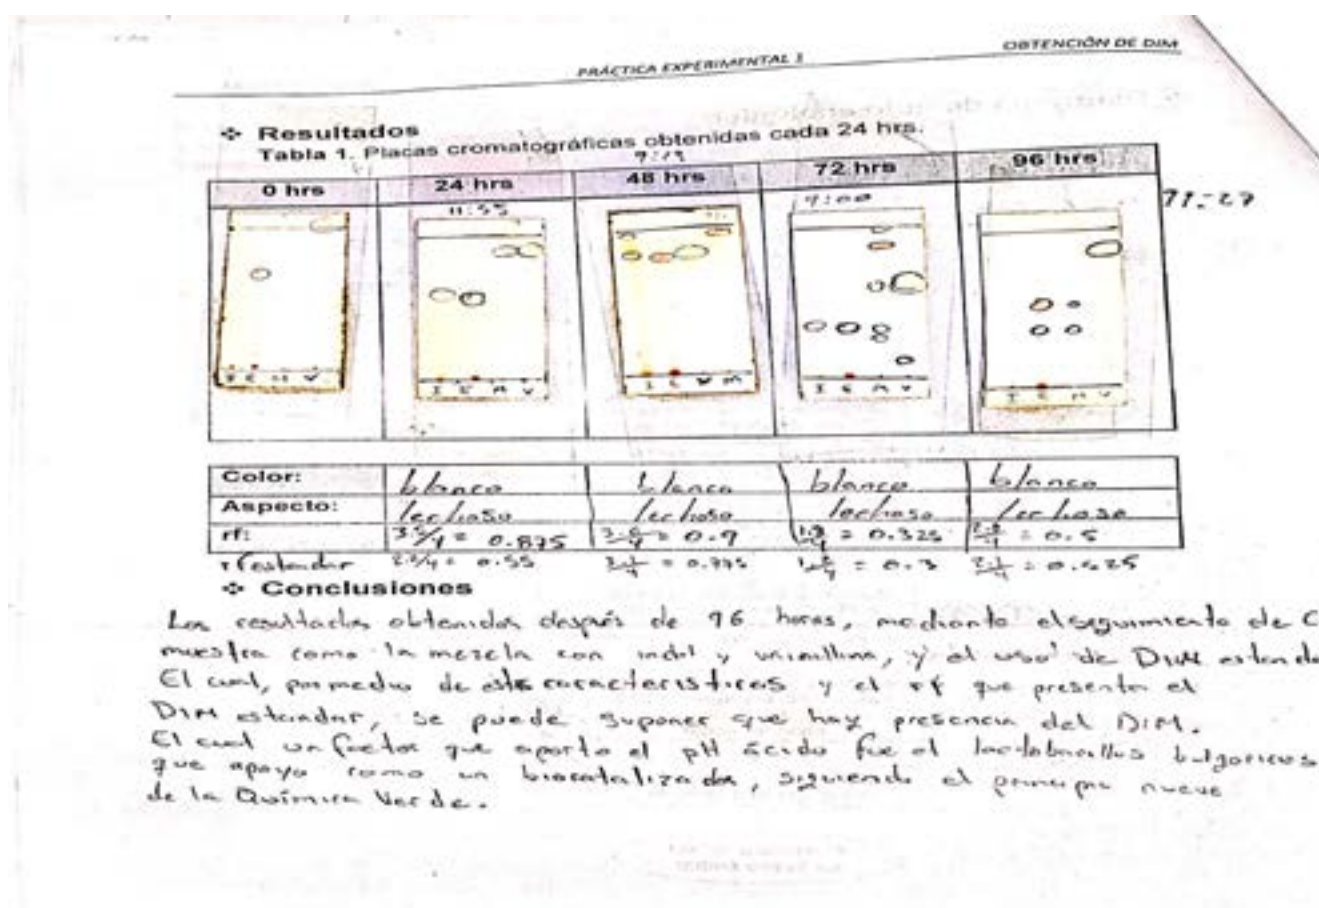 PRÁCTICA EXPERIMENTAL 1
OBTENCIÓN DE DIM
❖ Resultados
Tabla 1. Placas cromatográficas obtenidas cada 24 hrs.
0 hrs 24 hrs 48 hrs 72 hrs 96 hrs
11:55 9:00 11:27
I E M V
I E M V
I E V M
I E M V
I E M V
Color: blanco blanco blanco blanco
Aspecto: lechoso lechoso lechoso lechoso
rf: 3.5/4 = 0.875 = 0.9 = 0.325 = 0.5
rf estandar 2.2/4 = 0.55 = 0.775 = 0.3 = 0.525
❖ Conclusiones
Los resultados obtenidos después de 96 horas, mediante el seguimiento de C
muestra como la mezcla con indol y vainillina, y el uso de DIM estanda
El cual, por medio de características y el rf que presenta el
DIM estandar, se puede suponer que hay presencia del DIM.
El cual un factor que aporto el pH ácido fue el lactobacillus bulgaricus
que apoyo como un biocatalizador, siguiendo el principio nueve
de la Química Verde.